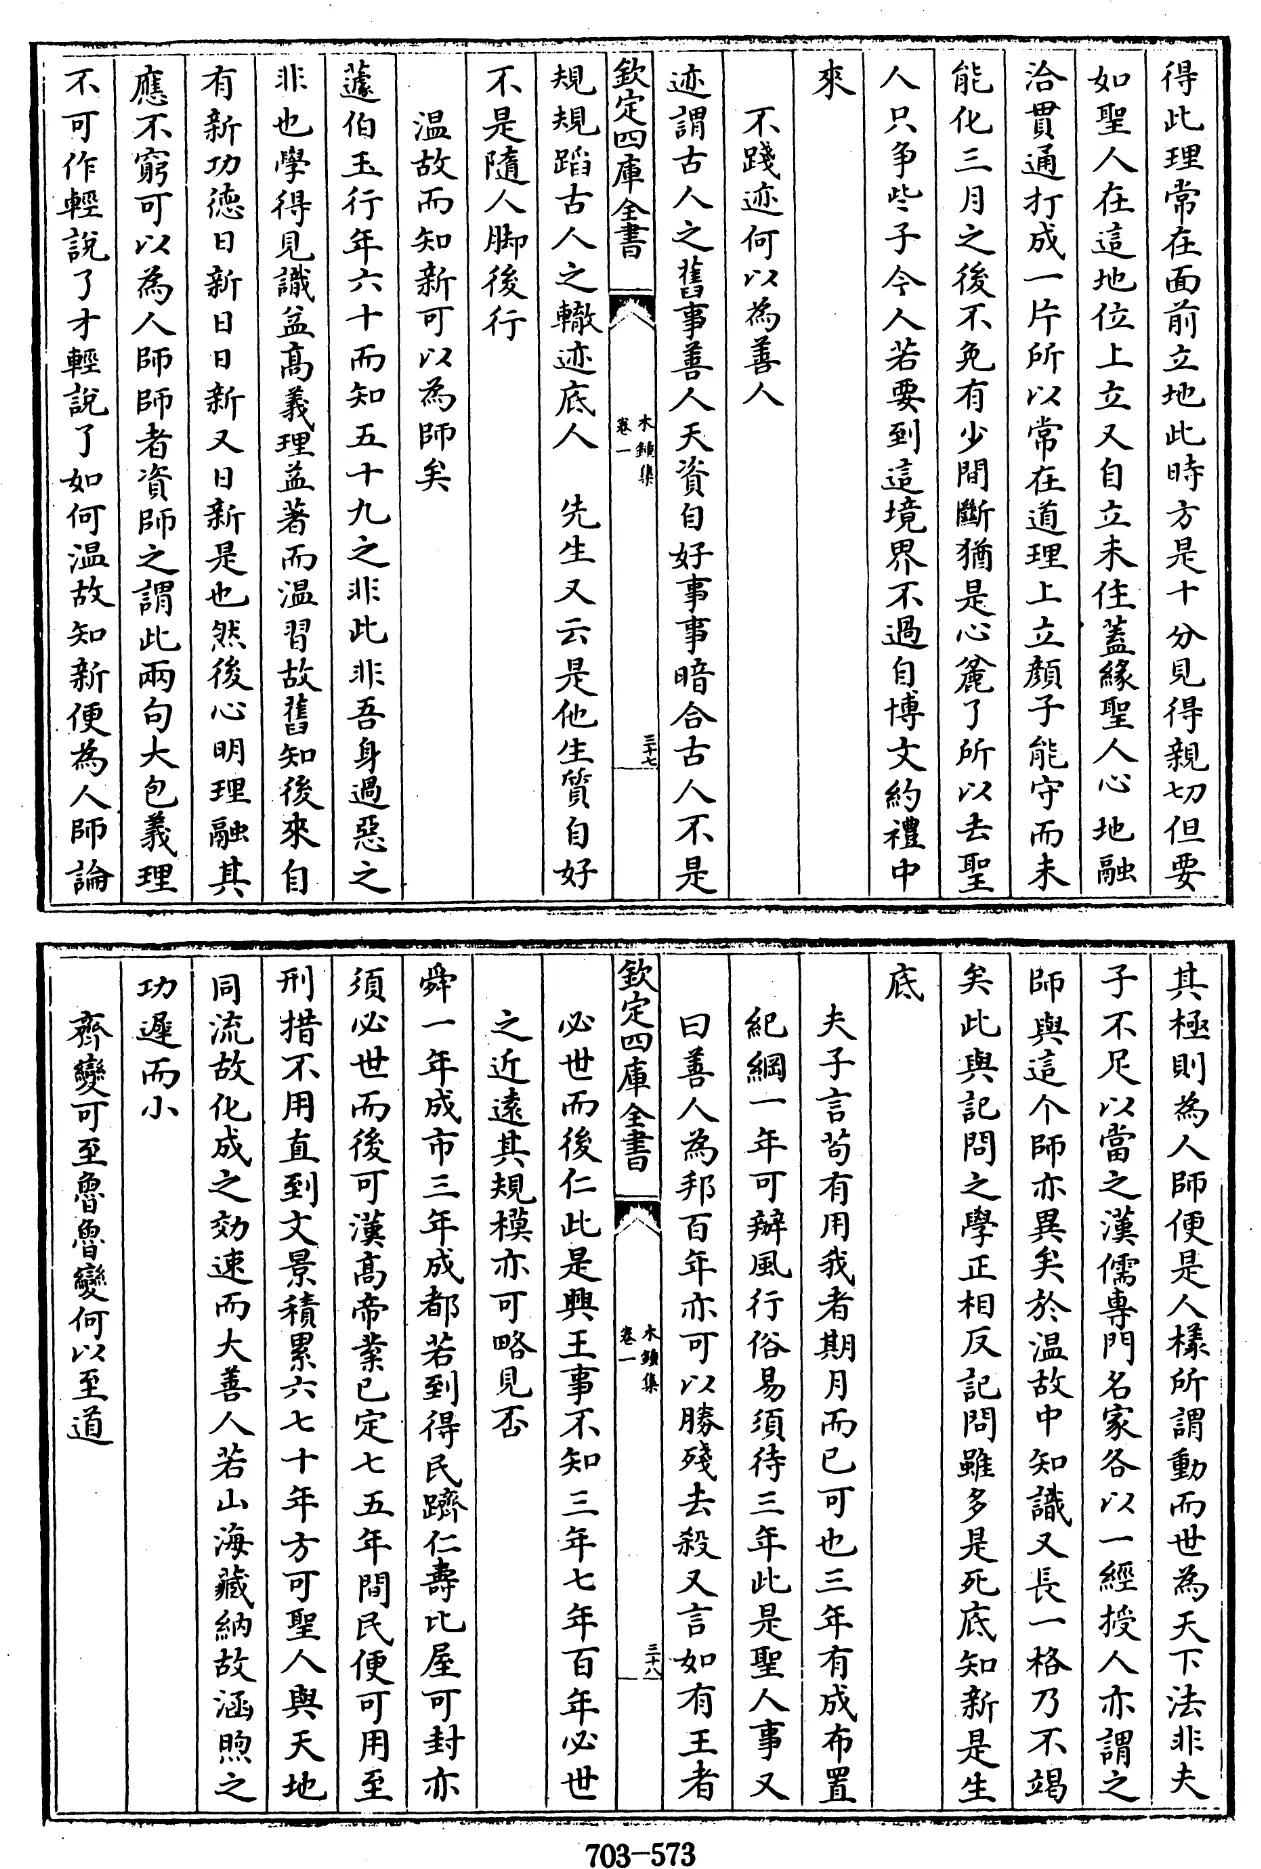 得此理常在面前立地此時方是十分見得親切但要
如聖人在這地位上立又自立未住蓋緣聖人心地融
洽貫通打成一片所以常在道理上立顔子能守而未
能化三月之後不免有少間斷猶是心麄了所以去聖
人只争些子今人若要到這境界不過自博文約禮中
來
不踐迹何以為善人
迹謂古人之舊事善人天資自好事事暗合古人不是
欽定四庫全書
木鐘集
卷一
三十七
規規蹈古人之轍迹底人　先生又云是他生質自好
不是隨人脚後行
温故而知新可以為師矣
蘧伯玉行年六十而知五十九之非此非吾身過惡之
非也學得見識益高義理益著而温習故舊知後來自
有新功徳日新日日新又日新是也然後心明理融其
應不窮可以為人師師者資師之謂此兩句大包義理
不可作輕說了才輕說了如何温故知新便為人師論
其極則為人師便是人樣所謂動而世為天下法非夫
子不足以當之漢儒專門名家各以一經授人亦謂之
師與這个師亦異矣於温故中知識又長一格乃不竭
矣此與記問之學正相反記問雖多是死底知新是生
底
夫子言茍有用我者期月而已可也三年有成布置
紀綱一年可辦風行俗易須待三年此是聖人事又
曰善人為邦百年亦可以勝殘去殺又言如有王者
欽定四庫全書
木鐘集
卷一
三十八
必世而後仁此是興王事不知三年七年百年必世
之近遠其規模亦可略見否
舜一年成市三年成都若到得民躋仁壽比屋可封亦
須必世而後可漢髙帝業已定七五年間民便可用至
刑措不用直到文景積累六七十年方可聖人與天地
同流故化成之効速而大善人若山海藏納故涵煦之
功遲而小
齊變可至魯魯變何以至道
703-573